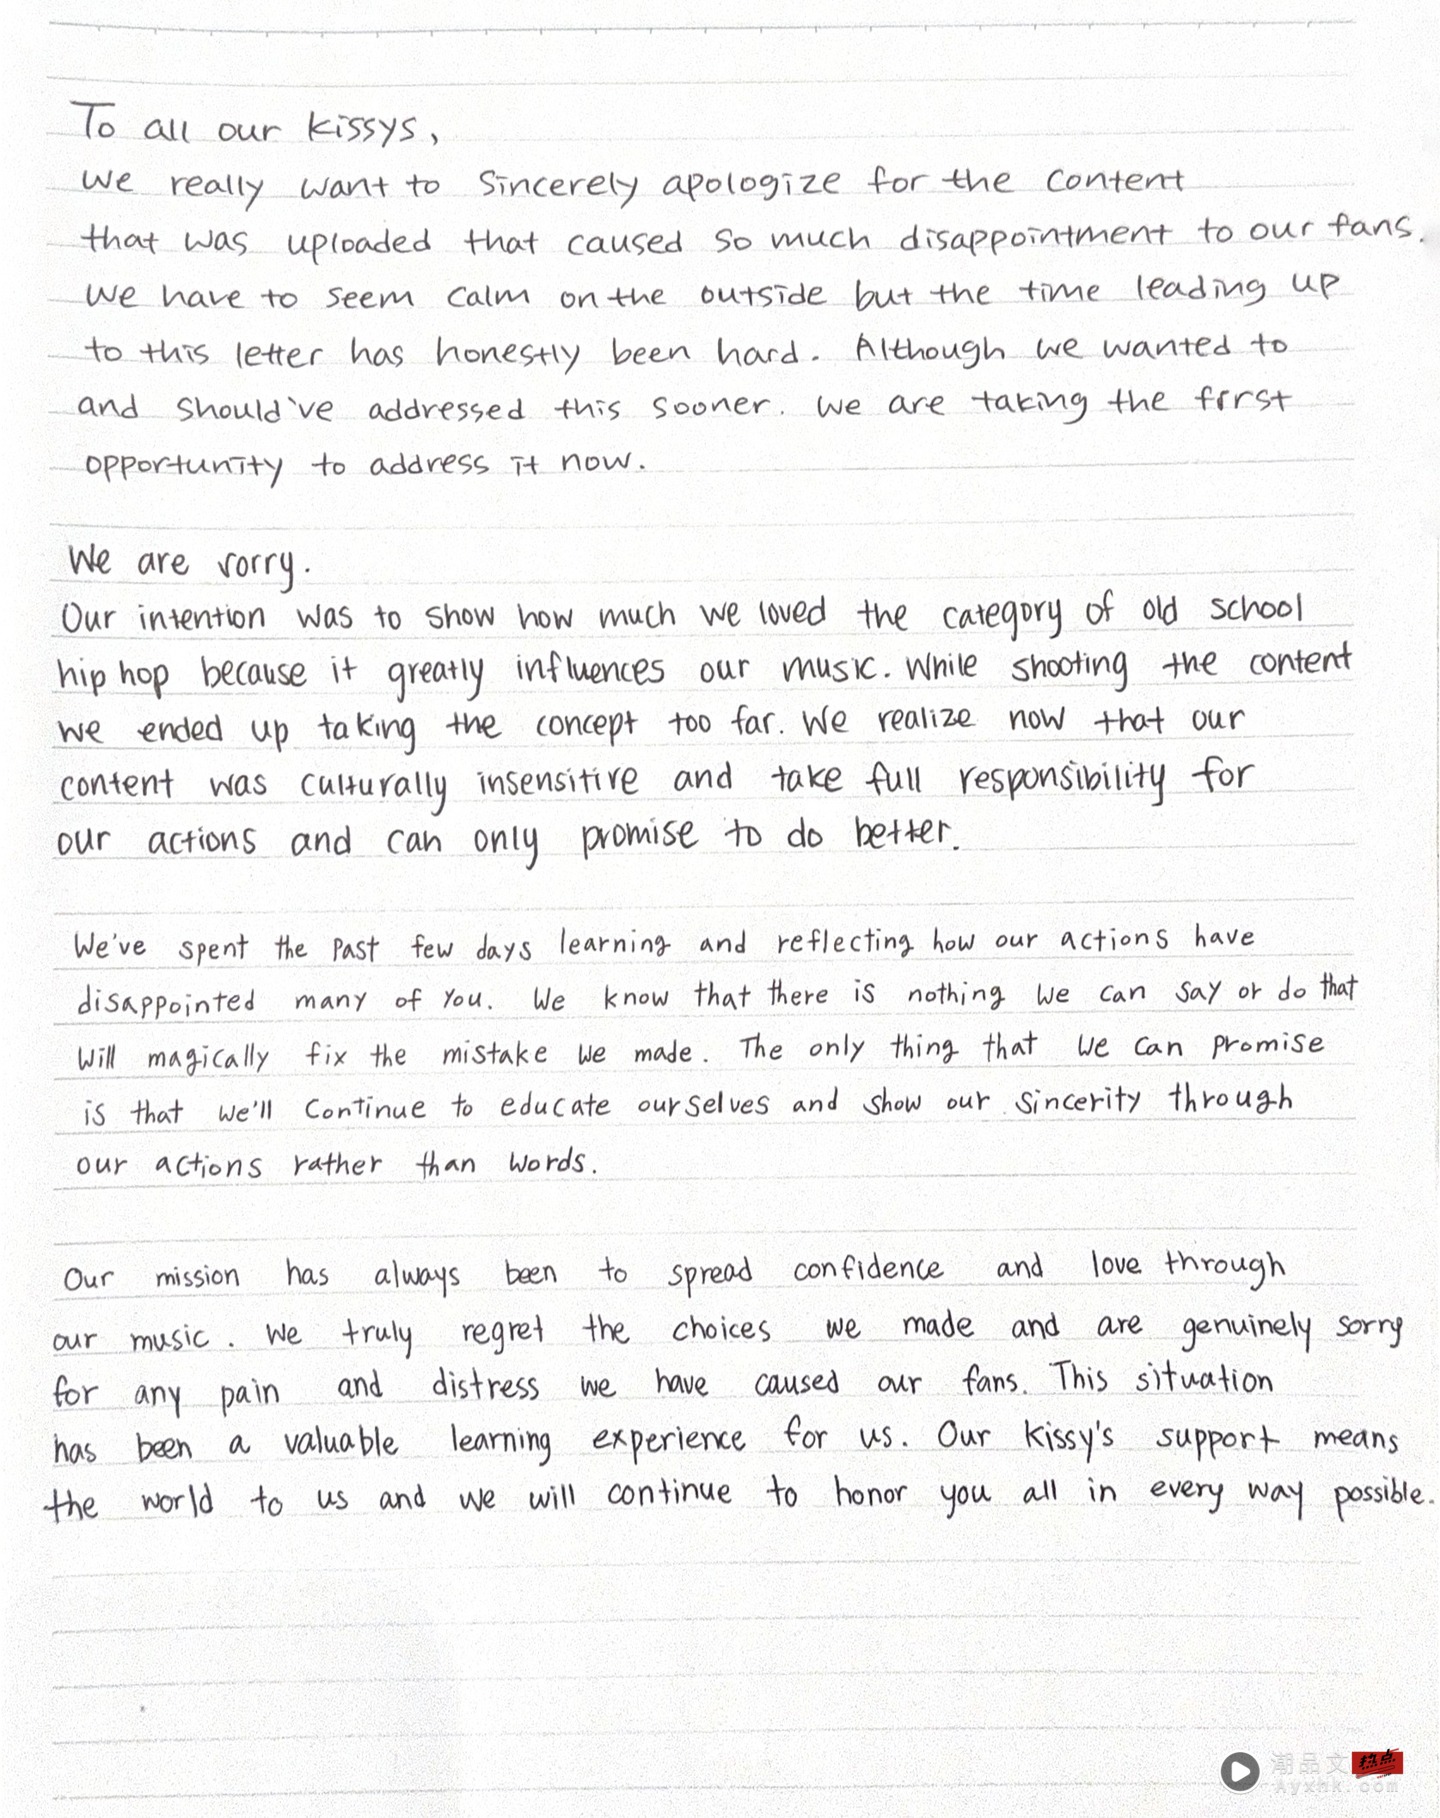 To all our kissys,
we really want to sincerely apologize for the content
that was uploaded that caused so much disappointment to our fans.
We have to seem calm on the outside but the time leading up
to this letter has honestly been hard. Although we wanted to
and should've addressed this sooner. we are taking the first
opportunity to address it now.
We are sorry.
Our intention was to show how much we loved the category of old school
hip hop because it greatly influences our music. While shooting the content
we ended up taking the concept too far. We realize now that our
content was culturally insensitive and take full responsibility for
our actions and can only promise to do better.
We've spent the past few days learning and reflecting how our actions have
disappointed many of you. We know that there is nothing we can say or do that
will magically fix the mistake we made. The only thing that we can promise
is that we'll continue to educate ourselves and show our sincerity through
our actions rather than words.
Our mission has always been to spread confidence and love through
our music. We truly regret the choices we made and are genuinely sorry
for any pain and distress we have caused our fans. This situation
has been a valuable learning experience for us. Our Kissy's support means
the world to us and we will continue to honor you all in every way possible.
潮品文 热点
Ayxhk.com